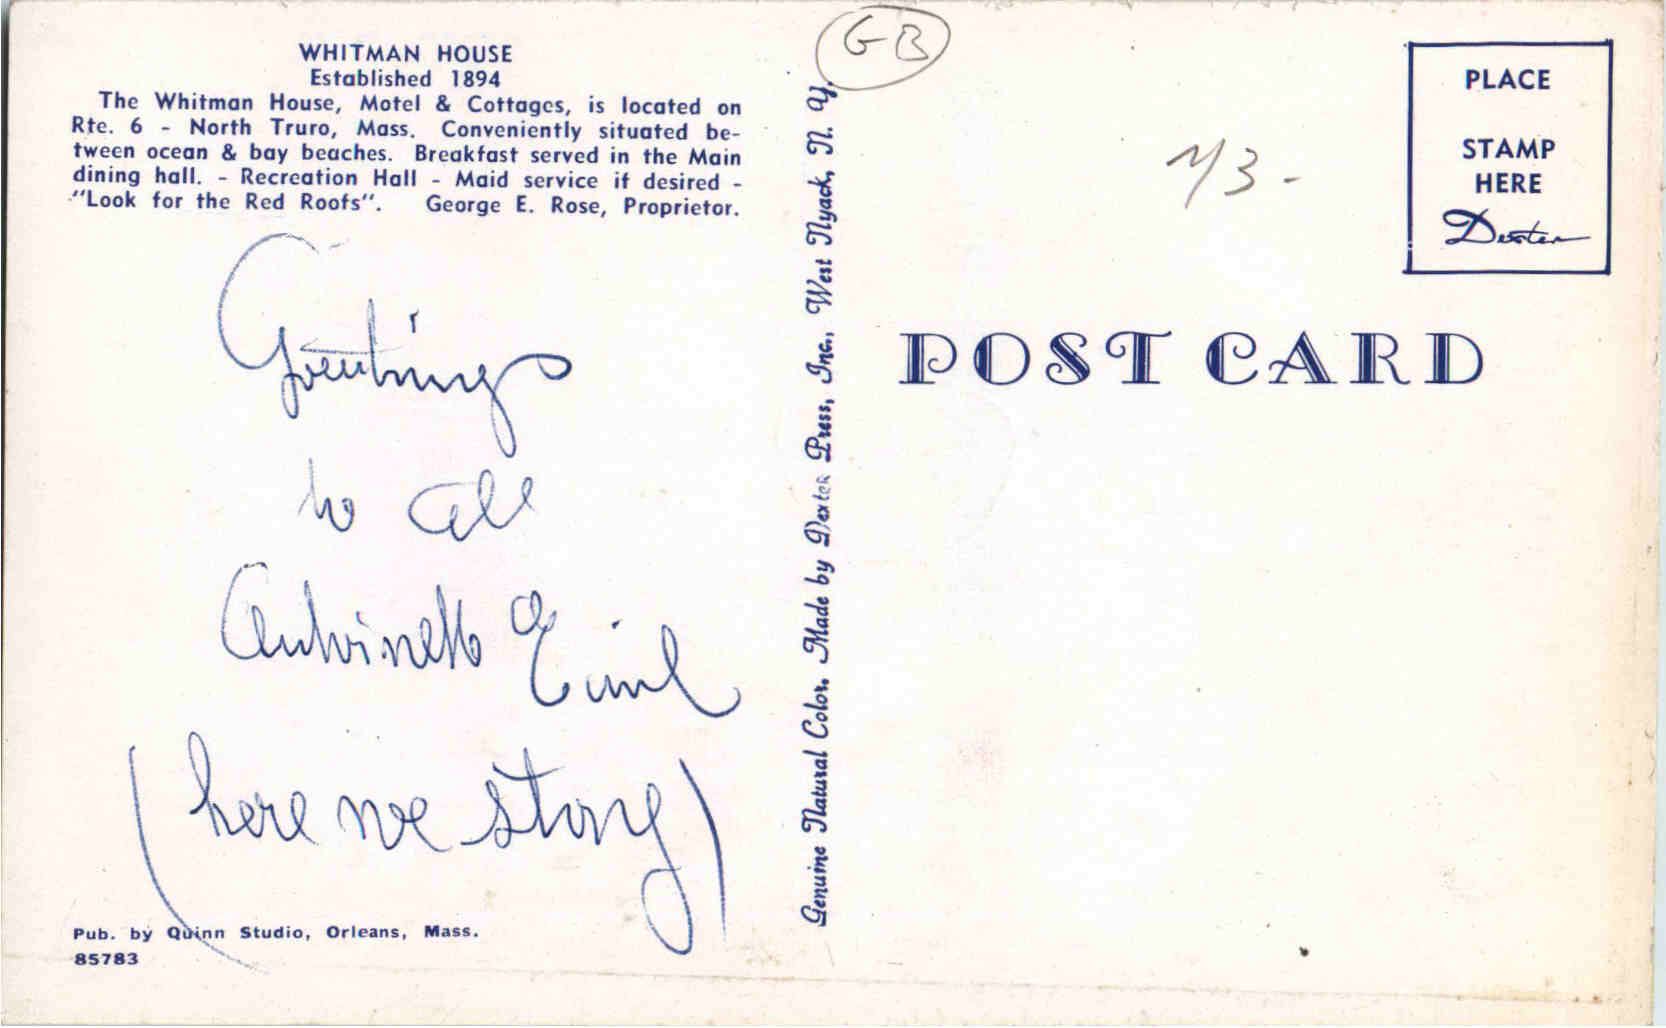 WHITMAN HOUSE
Established 1894
The Whitman House, Motel & Cottages, is located on
Rte. 6 - North Truro, Mass. Conveniently situated be-
tween ocean & bay beaches. Breakfast served in the Main
dining hall. - Recreation Hall - Maid service if desired -
"Look for the Red Roofs". George E. Rose, Proprietor.
Greetings
to all
Emil
(here we stay)
Pub. by Quinn Studio, Orleans, Mass.
85783
Genuine Natural Color. Made by Dexter Press, Inc., West Nyack, N. Y.
GB
PLACE
STAMP
HERE
Dexter
POST CARD